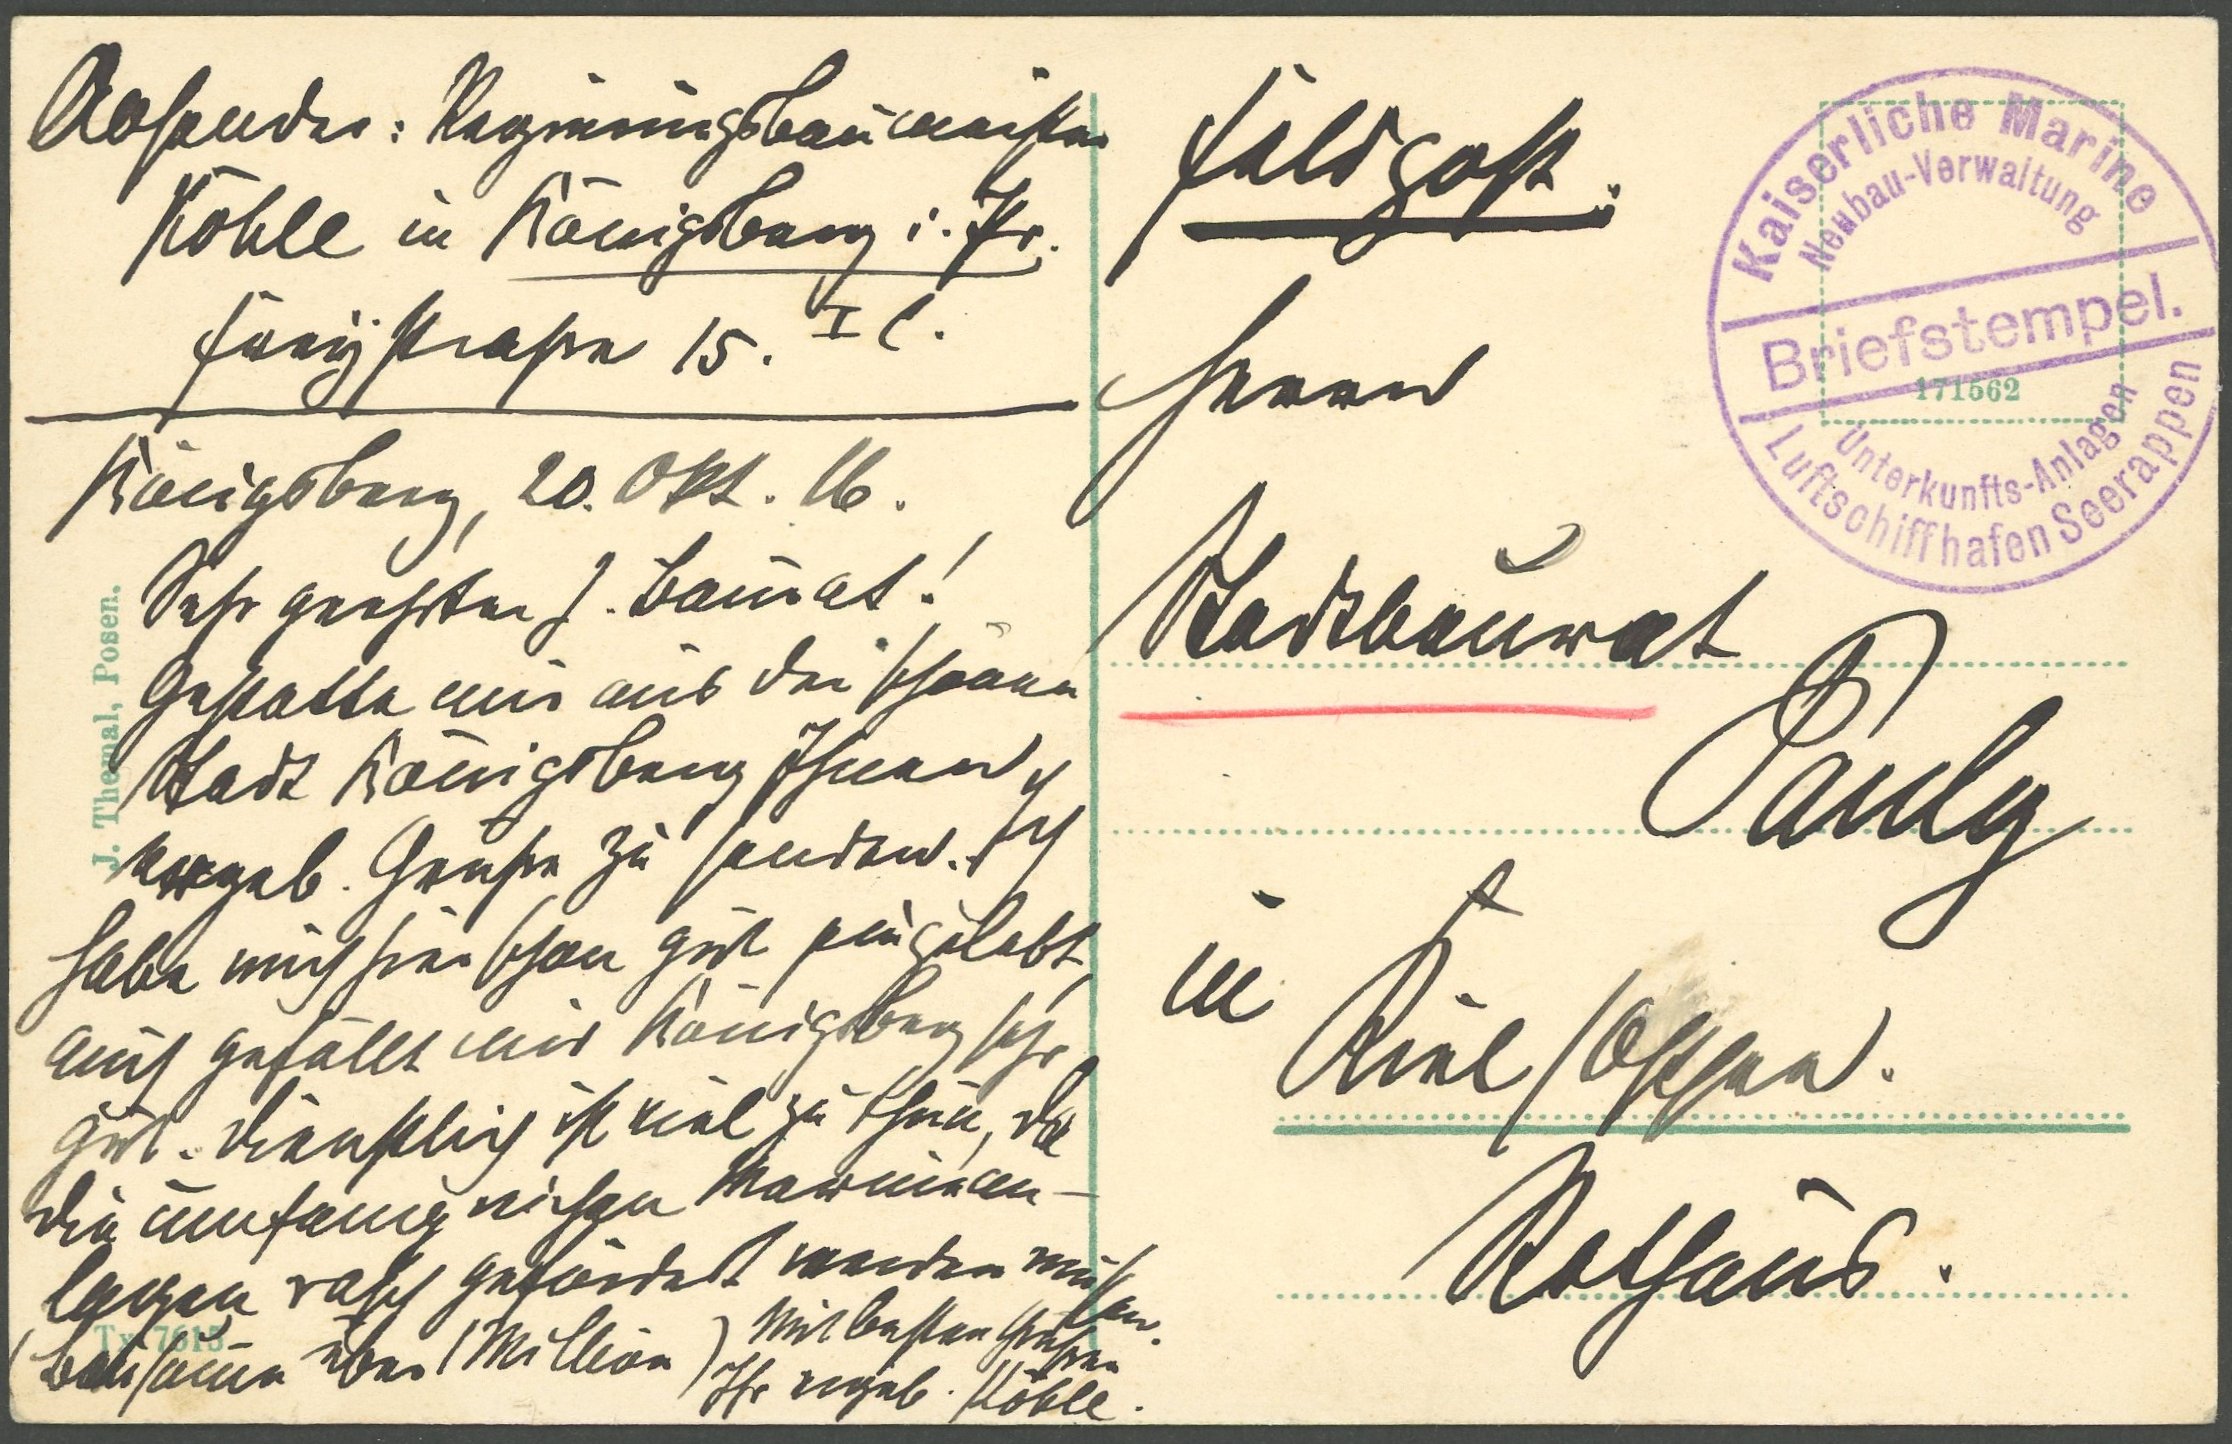 Absender: Regierungsbaumeister
Köhle in Königsberg i. Pr.
straße 15. I l.
Königsberg, 20. Okt. 16.
Sehr geehrter H. Baurat!
Gestatte mir aus der schönen
Stadt Königsberg Ihnen
ergeb. Grüße zu senden. Ich
habe mich hier schon gut eingelebt,
auch gefällt mir Königsberg sehr
gut. Dienstlich ist viel zu thun, da
die umfangreichen Marinean-
lagen rasch gefördert werden müssen.
(Bausumme über 1 Million) Mit besten Grüßen
Ihr ergeb. Köhle.
J. Themal, Posen.
Tx 7613
Feldpost.
Herrn
Stadtbaurat
Pauly
in Kiel / Ostsee.
Rathaus.
Kaiserliche Marine
Neubau-Verwaltung
Briefstempel.
171562
Unterkunfts-Anlagen
Luftschiffhafen Seerappen